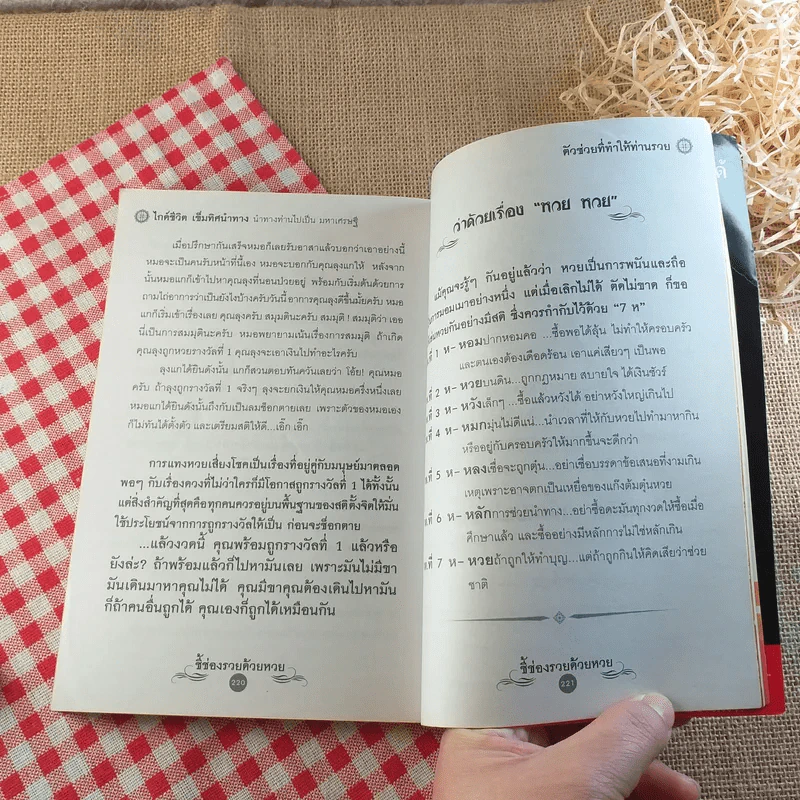 ไกด์ชีวิต เข็มทิศนำทาง นำทางท่านไปเป็น มหาเศรษฐี
เมื่อปรึกษากันเสร็จหมอก็เลยรับอาสาแล้วบอกว่าเอาอย่างนี้
หมอจะเป็นคนรับหน้าที่นี้เอง หมอจะบอกกับคุณลุงแกให้ หลังจาก
นั้นหมอแกก็เข้าไปหาคุณลุงที่นอนป่วยอยู่ พร้อมกับเริ่มต้นด้วยการ
ถามไถ่อาการว่าเป็นยังไงบ้างครับวันนี้ อาการคุณลุงดีขึ้นมั้ยครับ หมอ
แกก็เริ่มเข้าเรื่องเลย คุณลุงครับ สมมุตินะครับ สมมุติ ! สมมุติว่า เออ
นี่เป็นการสมมุตินะครับ หมอพยายามเน้นเรื่องการสมมุติ ถ้าเกิด
คุณลุงถูกหวยรางวัลที่ 1 คุณลุงจะเอาเงินไปทำอะไรครับ
ลุงแกได้ยินดังนั้น แกก็สวนตอบทันควันเลยว่า โอ้ย! คุณหมอ
ครับ ถ้าลุงถูกรางวัลที่ 1 จริงๆ ลุงจะยกเงินให้คุณหมอครึ่งหนึ่งเลย
หมอแกได้ยินดังนั้นถึงกับเป็นลมช็อกตายเลย เพราะตัวของหมอเอง
ก็ไม่ทันได้ตั้งตัว และเตรียมสติให้ดี...เอิ๊ก เอิ๊ก
การแทงหวยเสี่ยงโชคเป็นเรื่องที่อยู่คู่กับมนุษย์มาตลอด
พอๆ กับเรื่องดวงที่ไม่ว่าใครก็มีโอกาสถูกรางวัลที่ 1 ได้ทั้งนั้น
แต่สิ่งสำคัญที่สุดคือทุกคนควรอยู่บนพื้นฐานของสติตั้งจิตให้มั่น
ใช้ประโยชน์จากการถูกรางวัลให้เป็น ก่อนจะช็อกตาย
...แล้วงวดนี้ คุณพร้อมถูกรางวัลที่ 1 แล้วหรือ
ยังล่ะ? ถ้าพร้อมแล้วก็ไปหามันเลย เพราะมันไม่มีขา
มันเดินมาหาคุณไม่ได้ คุณมีขาคุณต้องเดินไปหามัน
ก็ถ้าคนอื่นถูกได้ คุณเองก็ถูกได้เหมือนกัน
ชี้ช่องรวยด้วยหวย
220
ตัวช่วยที่ทำให้ท่านรวย
ว่าด้วยเรื่อง "หวย หวย"
แม้คุณจะรู้ๆ กันอยู่แล้วว่า หวยเป็นการพนันและถือ
การมอมเมาอย่างหนึ่ง แต่เมื่อเลิกไม่ได้ ตัดไม่ขาด ก็ขอ
หวยกันอย่างมีสติ ซึ่งควรกำกับไว้ด้วย "7 ห"
ที่ 1 ห– หอมปากหอมคอ ...ซื้อพอได้ลุ้น ไม่ทำให้ครอบครัว
และตนเองต้องเดือดร้อน เอาแค่เสียวๆ เป็นพอ
ที่ 2 ห– หวยบนดิน...ถูกกฎหมาย สบายใจ ได้เงินชัวร์
ที่ 3 ห– หวังเล็กๆ ...ซื้อแล้วหวังได้ อย่าหวังใหญ่เกินไป
ที่ 4 ห– หมกมุ่นไม่ดีแน่...นำเวลาที่ให้กับหวยไปทำมาหากิน
หรืออยู่กับครอบครัวให้มากขึ้นจะดีกว่า
ที่ 5 ห– หลงเชื่อจะถูกตุ๋น...อย่าเชื่อบรรดาข้อเสนอที่งามเกิน
เหตุเพราะอาจตกเป็นเหยื่อของแก๊งต้มตุ๋นหวย
ที่ 6 ห– หลักการช่วยนำทาง...อย่าซื้อดะมันทุกงวดให้ซื้อเมื่อ
ศึกษาแล้ว และซื้ออย่างมีหลักการไม่ใช่หลักเกิน
ที่ 7 ห– หวยถ้าถูกให้ทำบุญ...แต่ถ้าถูกกินให้คิดเสียว่าช่วย
ชาติ
ชี้ช่องรวยด้วยหวย
221